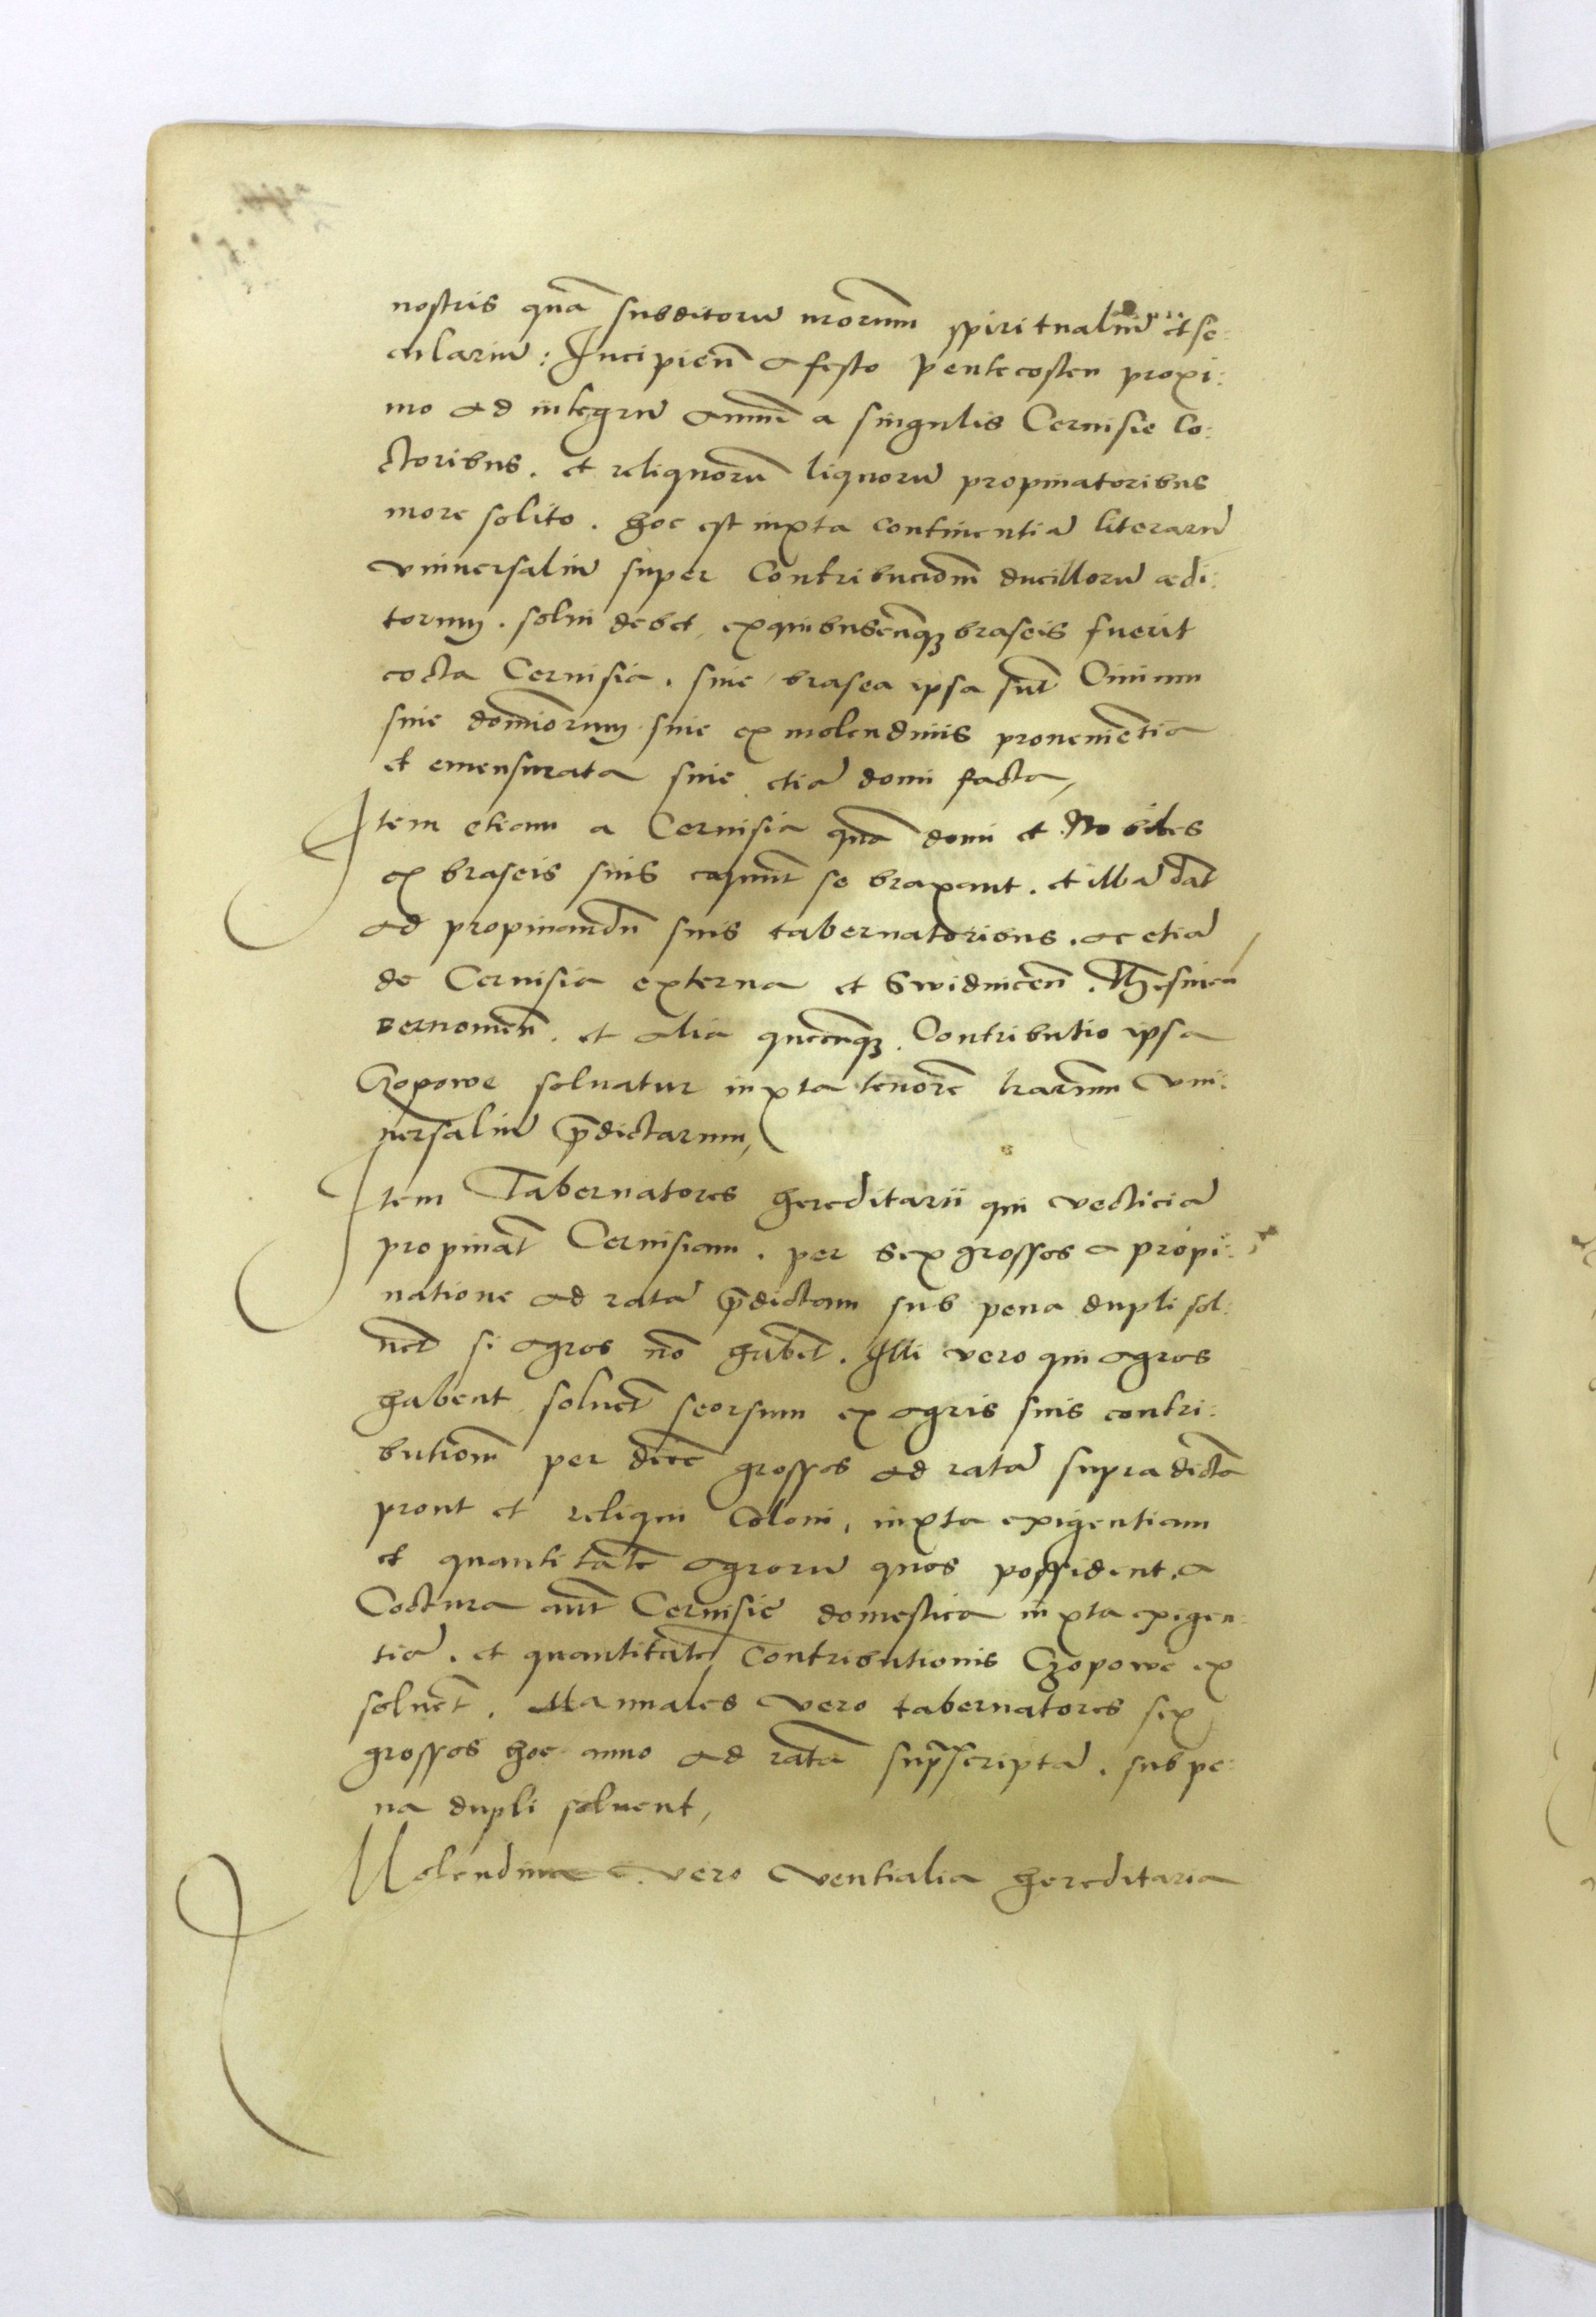 nostris quā subditorū nrorum spiritualiū et se:
culariū: Incipien̄ a festo Pentecosten proxi:
mo ad integrū annū a singulis Ceruisie Co:
ctoribus. et reliquorū liquorū propinatoribus
more solito. hoc est iuxta continentiā literarū
vniuersaliū super Contribucionem ducillorū ædi:
torum. solui debet, ex quibuscunq; braseis fuerit
cocta Ceruisia. siue brasea ipsa sūt Ciuium
siue dominorum siue ex molendinis prouenientia
et emensurata siue etiā domi facta,
Item etiam a Ceruisia quā domi et Nobiles
ex braseis suis braxant. et illā dāt
ad propinandū suis tabernatoribus. ac etiā
de Ceruisia externa et Swidnicen̄.
et alia quecunq;. Contributio ipsa
Czopowe soluatur iuxta tenorē lrarum vni:
uersaliū p̄dictarum,
Item Tabernatores hereditarii qui vecticiā
propināt Ceruisiam. per sex grossos a propi:
natione ad ratā p̄dictam sub pena dupli sol:
uēt si agros nō habēt. Illi vero qui agros
habent soluēt seorsum ex agris suis contri:
butionē per decē grossos ad ratā supradictā
prout et reliqui Coloni, iuxta exigentiam
et quantitatē agrorū quos possident. a
Coctura aūt Ceruisie domestica iuxta exigen:
tiā. et quantitatē Contributionis Czopowe ex
soluēt. Manuales vero tabernatores sex
grossos hoc anno ad ratā supᵃscriptā. sub pe:
na dupli soluent,
Molendina vero ventialia hereditaria